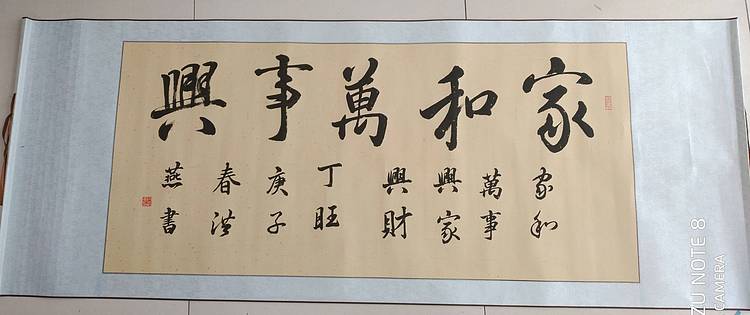 家和萬事興
家和
萬事
興家
興財
丁旺
庚子
春洪
燕書
ZU NOTE 8
CAMERA